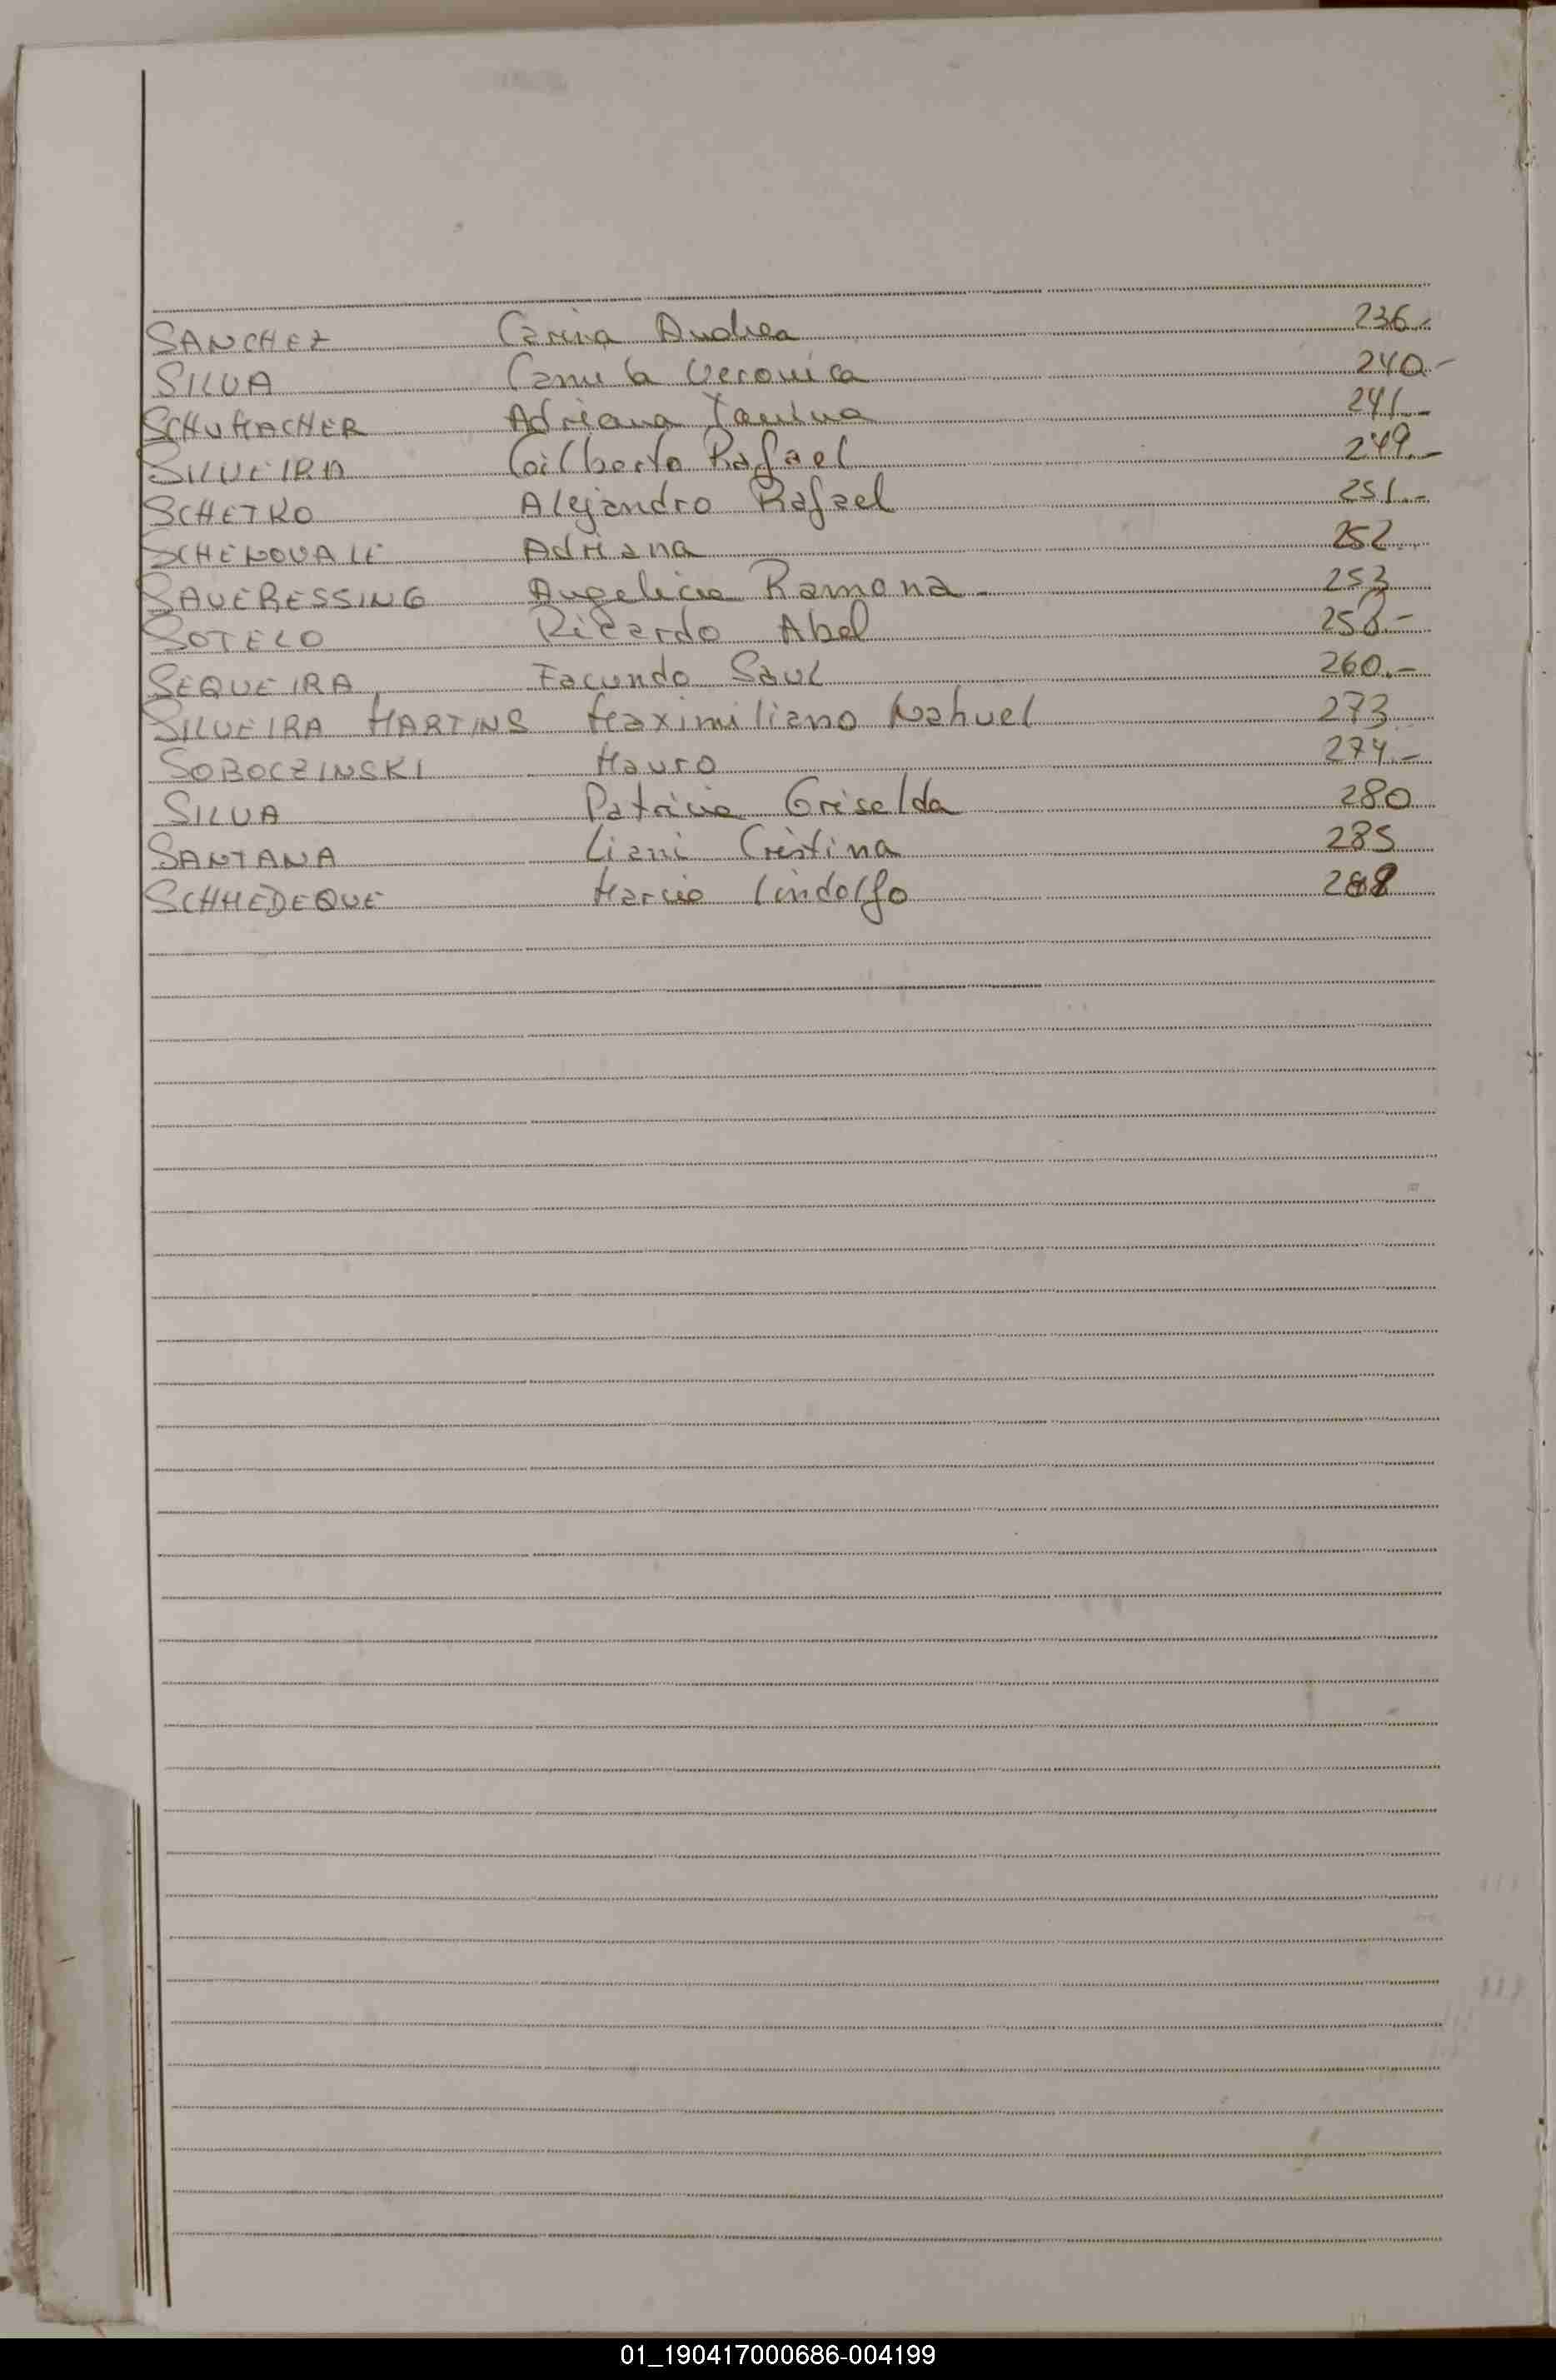 SANCHEZ Carina Andrea 236.-
SILVA Camila Veronica 240.-
SCHUMACHER Adriana Yanina 241.-
SILVEIRA Gilberto Rafael 249.-
SCHETKO Alejandro Rafael 251.-
SCHENOVALE Adriana 252.
SAUERESSING Angelica Ramona.- 253
SOTELO Ricardo Abel 258.-
SEQUEIRA Facundo Saul 260.-
SILVEIRA MARTINS Maximiliano Nahuel 273
SOBOCZINSKI Mauro 274.-
SILVA Patricia Griselda 280
SANTANA Liani Cristina 285
SCHMEDEQUE Marcio Lindolfo
01_190417000686-004199